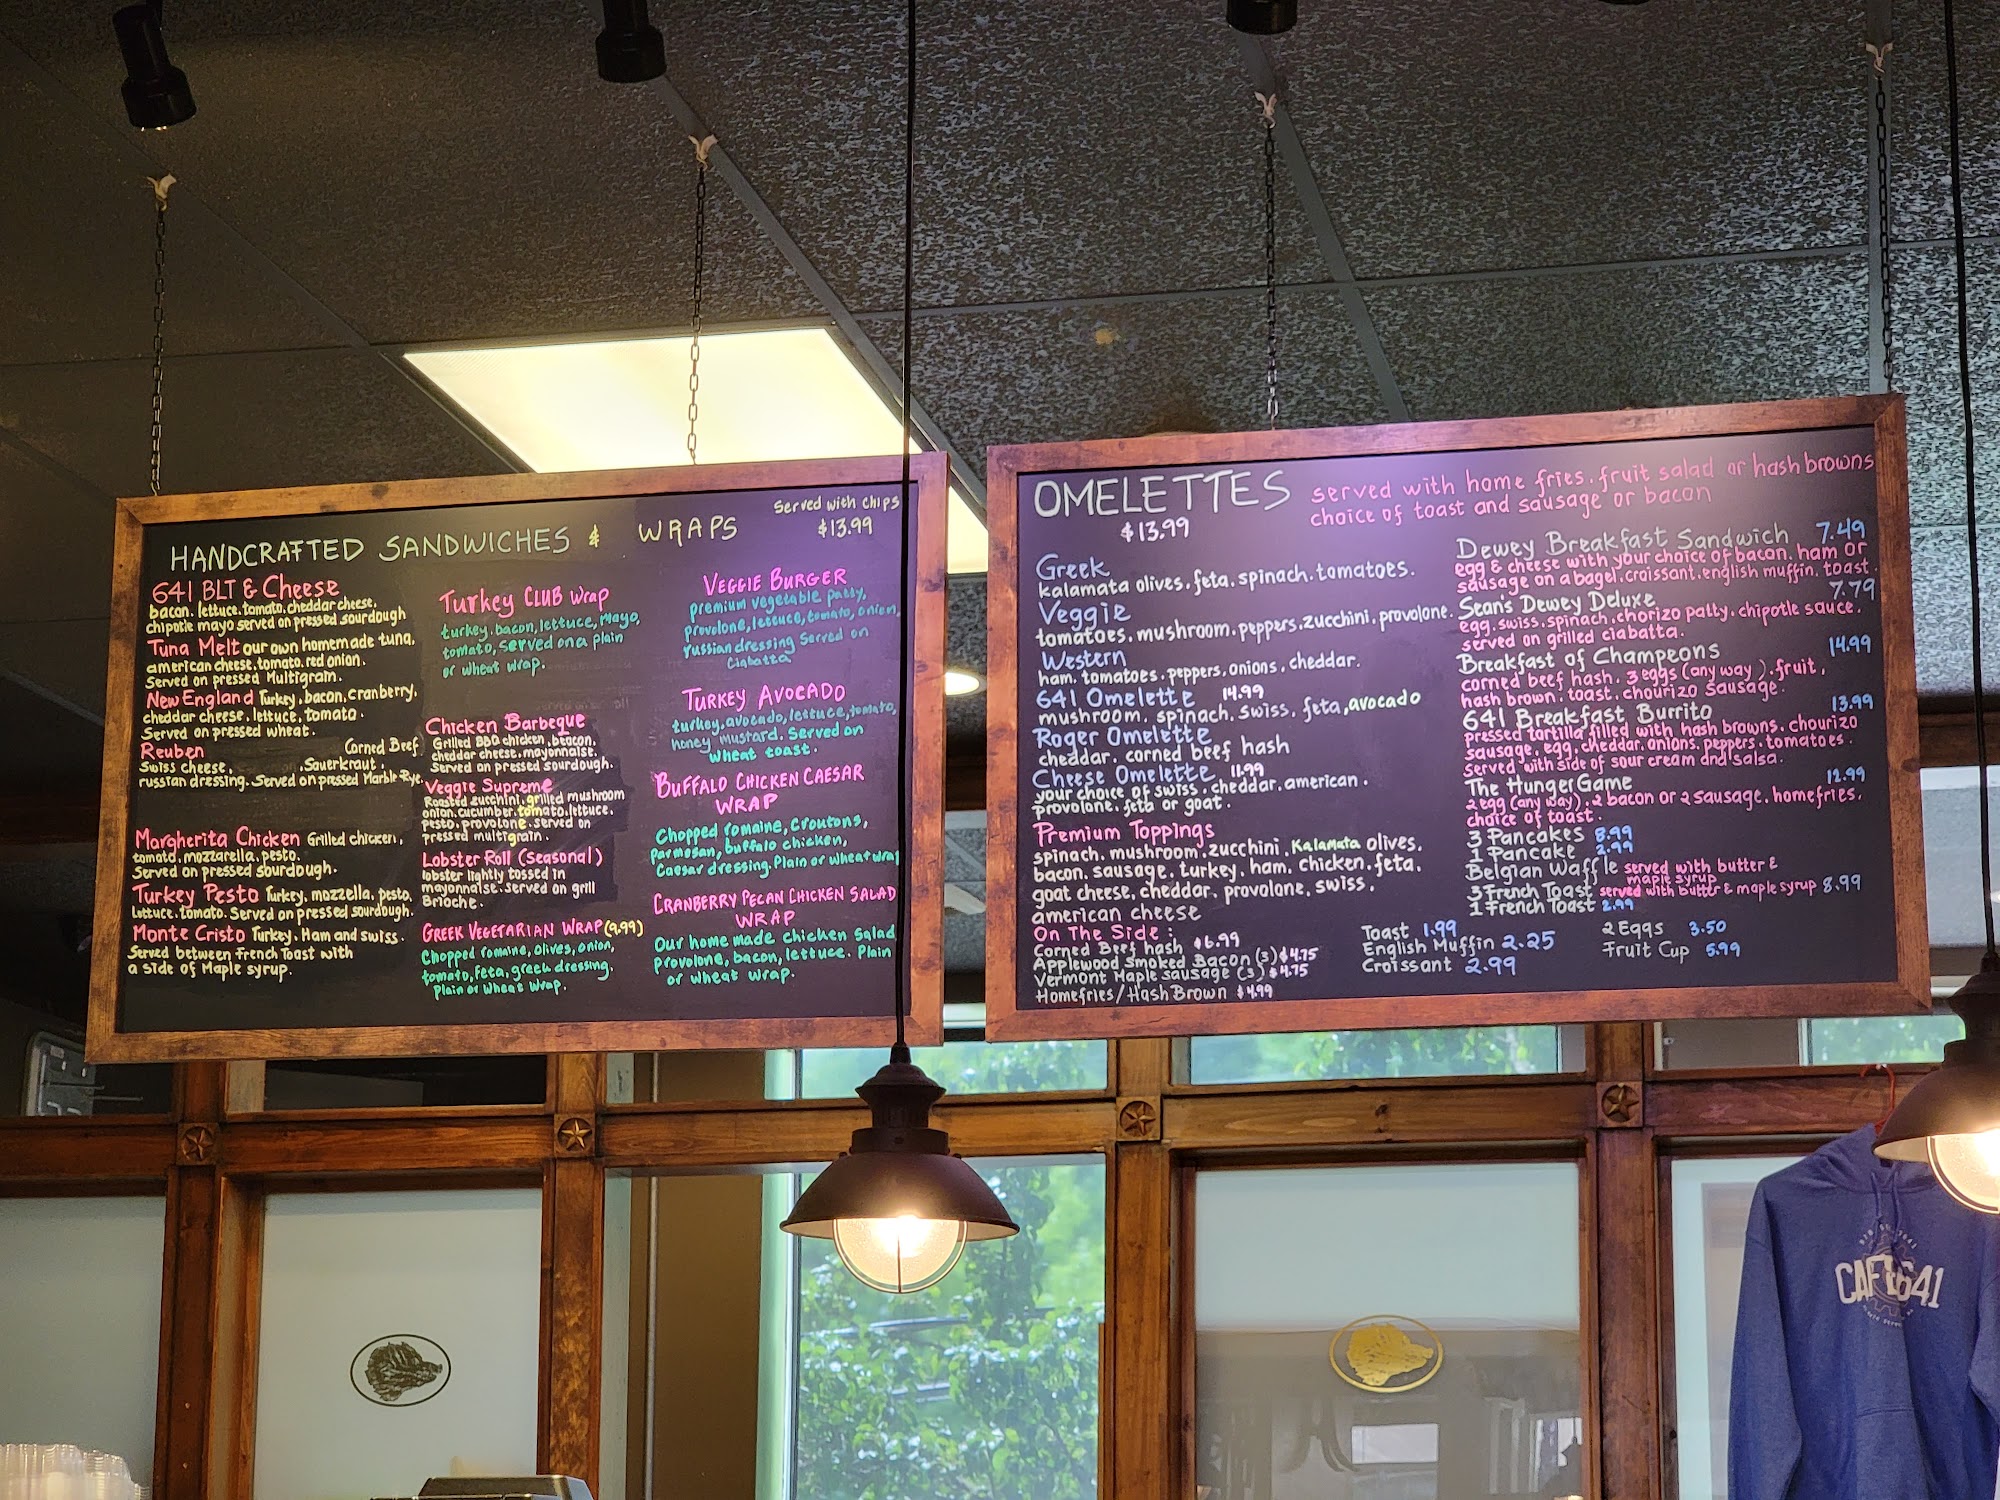 HANDCRAFTED SANDWICHES & WRAPS
Served with chips
$13.99
641 BLT & Cheese
bacon. lettuce. tomato. cheddar cheese.
chipotle mayo served on pressed sourdough
Tuna Melt our own homemade tuna.
american cheese. tomato. red onion.
Served on pressed Multigrain.
New England Turkey. bacon. cranberry.
cheddar cheese. lettuce. tomato.
Served on pressed wheat.
Reuben Corned Beef
Swiss cheese. .Sauerkraut.
russian dressing. Served on pressed Marble Rye.
Margherita Chicken Grilled chicken,
tomato, mozzarella, pesto.
Served on pressed sourdough.
Turkey Pesto Turkey, mozzella, pesto,
Lettuce. tomato. Served on pressed sourdough.
Monte Cristo Turkey. Ham and swiss.
Served between French Toast with
a side of Maple syrup.
Turkey CLUB Wrap
turkey, bacon, lettuce, Mayo,
tomato, served on a plain
or wheat wrap.
Chicken Barbeque
Grilled BBQ chicken, beacon,
cheddar cheese, mayonnalse.
Served on pressed sourdough.
Veggie Supreme
Roasted zucchini, grilled mushroom
onion. cucumber. tomato. lettuce.
pesto. provolone. served on
pressed multigrain.
Lobster Roll (Seasonal)
lobster lightly tossed in
mayonnaise. Served on grill
Brioche.
GREEK VEGETARIAN WRAP (9.99)
Chopped romaine, olives, onion,
tomato, feta, greek dressing.
Plain or Wheat Wrap.
VEGGIE BURGER
premium vegetable patty,
provolone, lettuce, tomato, onion,
russian dressing Served on
Ciabatta
TURKEY AVOCADO
turkey, avocado, lettuce, tomato,
honey mustard. Served on
wheat toast.
BUFFALO CHICKEN CAESAR
WRAP
Chopped romaine, Croutons,
parmesan, buffalo chicken,
Caesar dressing. Plain or Wheat wrap
CRANBERRY PECAN CHICKEN SALAD
WRAP
Our home made chicken salad
provolone, bacon, lettuce. Plain
or Wheat Wrap.
OMELETTES
$13.99
served with home fries. fruit salad or hash browns
choice of toast and sausage or bacon
Greek
kalamata olives. feta. spinach. tomatoes.
Veggie
tomatoes. mushroom. peppers. zucchini. provolone.
Western
ham. tomatoes. peppers. onions. cheddar.
641 Omelette 14.99
mushroom. spinach. swiss. feta, avocado
Roger Omelette
cheddar. corned beef hash
Cheese Omelette 11.99
your choice of swiss. cheddar. american.
provolone. feta or goat.
Premium Toppings
spinach. mushroom. zucchini. Kalamata olives.
bacon. sausage. turkey. ham. chicken. feta.
goat cheese, cheddar. provolone. swiss.
american cheese
On The Side:
Corned Beef hash $6.99
Applewood Smoked Bacon (3) $4.75
Vermont Maple Sausage (3) $4.75
Homefries/Hash Brown $4.99
Dewey Breakfast Sandwich 7.49
egg & cheese with your choice of bacon. ham or
sausage on a bagel. croissant. english muffin. toast.
Sean's Dewey Deluxe 7.79
egg. swiss. spinach. chorizo patty. chipotle sauce.
served on grilled ciabatta.
Breakfast of Champeons 14.99
corned beef hash. 3 eggs (any way). fruit,
hash brown. toast. chourizo sausage.
641 Breakfast Burrito 13.99
pressed tortilla filled with hash browns. chourizo
sausage. egg. cheddar. onions. peppers. tomatoes.
Served with side of sour cream and salsa.
The HungerGame 12.99
2 egg (any way). 2 bacon or 2 sausage. homefries.
choice of toast.
3 Pancakes 8.99
1 Pancake 2.99
Belgian Waffle served with butter &
maple syrup
3 French Toast served with butter & maple syrup 8.99
1 French Toast 2.99
Toast 1.99
English Muffin 2.25
Croissant 2.99
2 Eggs 3.50
Fruit Cup 5.99
CAFE 641